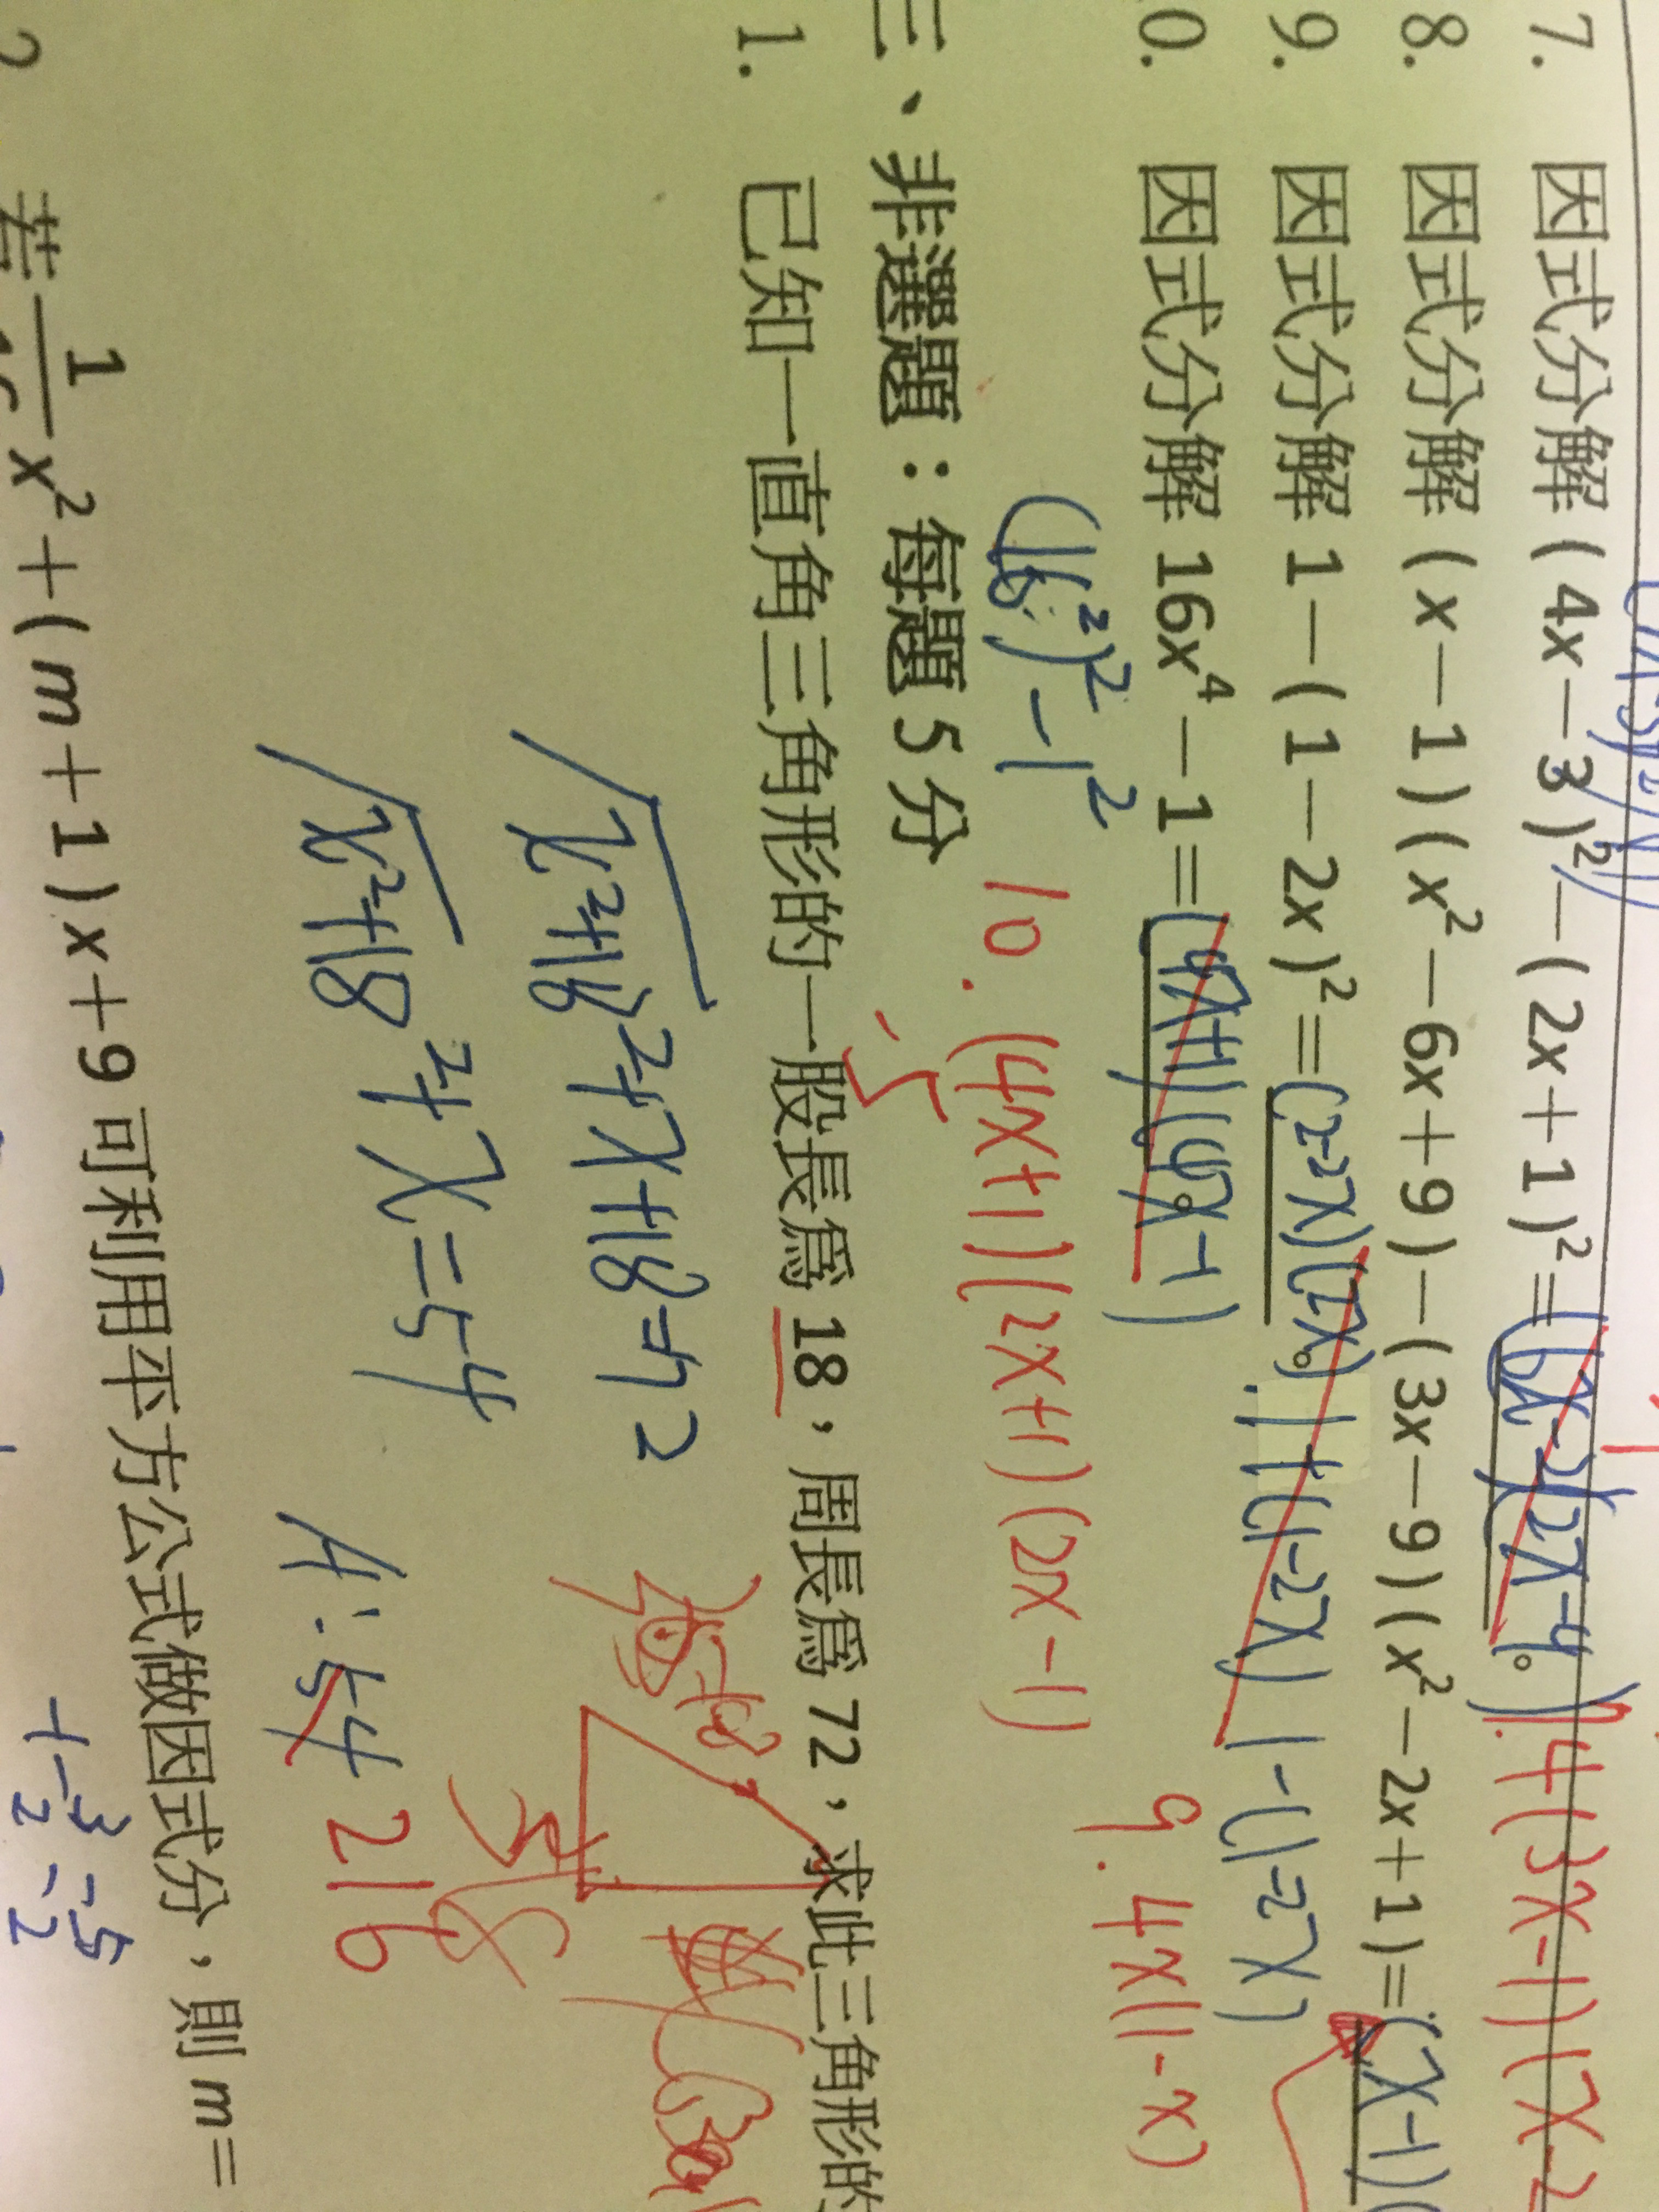 7. 因式分解 (4x－3)²－(2x＋1)²＝(6x-2)(2x-4)。 4(3x-1)(x-2
8. 因式分解 (x－1)(x²－6x＋9)－(3x－9)(x²－2x＋1)＝(x-1)(
9. 因式分解 1－(1－2x)²＝(2-2x)(2x)。 1+(1-2x) 1-(1-2x)
10. 因式分解 16x⁴－1＝(4x+1)(4x-1)。 9. 4x(1-x)
(16²)²-1²
10. (4x+1)(2x+1)(2x-1)
三、非選題：每題 5 分
-5
1. 已知一直角三角形的一股長為 18，周長為 72，求此三角形的
√x²+18²+x+18=72
√x²+18²+x=54
A:54 216
2. 若 1 x²＋(m＋1)x＋9 可利用平方公式做因式分，則 m＝
-1-3/2=-5/2